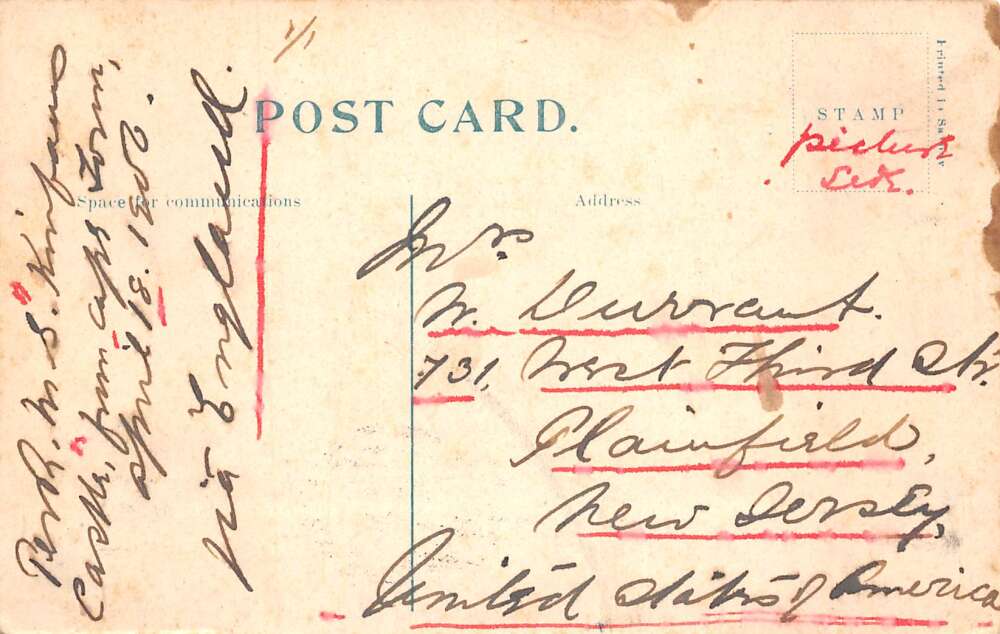 POST CARD.
STAMP
picture
side.
Space for communications
Address
Per R. M. S. Kinfauns
Castle, from Cape Town,
April 18. 1906.
via England.
Mrs.
W. Durrant.
731, West Third Str.
Plainfield,
New Jersey,
United States of America